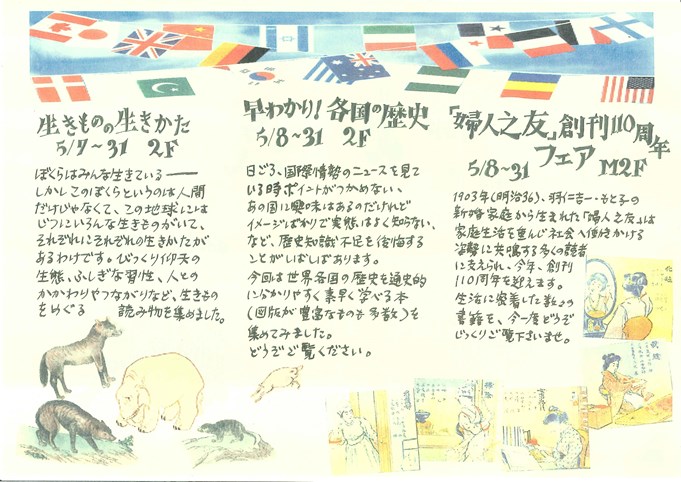 生きものの生きかた
5/7~31 2F
ぼくらはみんな生きている――
しかしこのぼくらというのは人間
だけじゃなくて、この地球には
じつにいろんな生きものがいて、
それぞれにそれぞれの生きかたが
あるわけです。びっくり仰天の
生態、ふしぎな習性、人との
かかわりやつながりなど、生きもの
をめぐる 読み物を集めました。
早わかり!各国の歴史
5/8~31 2F
日ごろ、国際情勢のニュースを見て
いる時ポイントがつかめない、
あの国に興味はあるのだけれど
イメージばかりで実態はよく知らない、
など、歴史知識不足を後悔する
ことがしばしばあります。
今回は世界各国の歴史を通史的
にわかりやすく素早く学べる本
(図版が豊富なものも多数)を
集めてみました。
どうぞご覧ください。
「婦人之友」創刊110周年
フェア
5/8~31 M2F
1903年(明治36)、羽仁吉一・もと子の
新婚家庭から生まれた「婦人之友」は
家庭生活を重んじ社会へ働きかける
姿勢に共鳴する多くの読者
に支えられ、今年、創刊
110周年を迎えます。
生活に密着した数々の
書籍を、今一度どうぞ
じっくりご覧下さいませ。